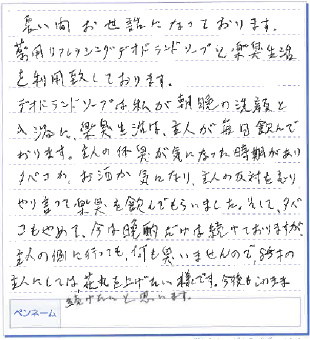 長い間お世話になっております。
薬用リフレッシングデオドランドソープと楽臭生活
を利用致しております。
デオドランドソープは私が朝晩の洗顔と
入浴に、楽臭生活は、主人が毎日飲んで
おります。主人の体臭が気になった時期があり
タバコか、お酒か気になり、主人の反対を
やり言って楽臭を飲んでもらいました。そして、タバ
コもやめて、今は晩酌だけは続けておりますが、
主人の側に行っても、何も臭いませんので、
主人にしては花丸を上げたい様です。今後もこのまま
続けたいと思います。
ペンネーム